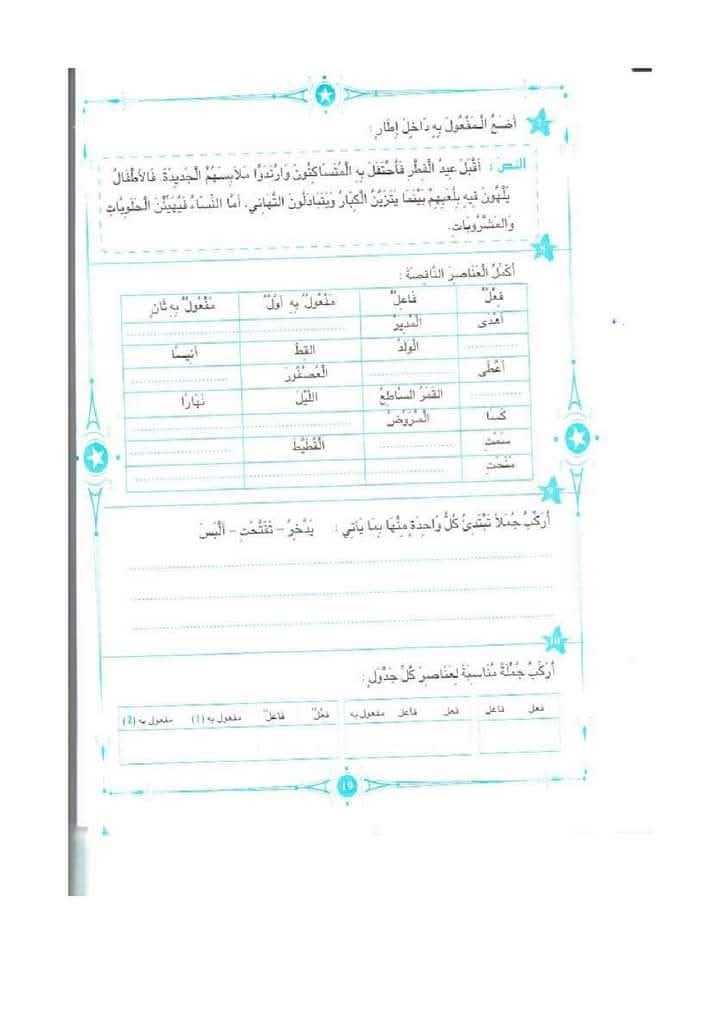 7
أَضَعُ الْمَفْعُولَ بِهِ دَاخِلَ إِطَارٍ :
النص : أَقْبَلَ عِيدُ الْفِطْرِ فَاحْتَفَلَ بِهِ الْمُتَسَاكِنُونَ وَارْتَدَوْا مَلَابِسَهُمُ الْجَدِيدَةَ. فَالأَطْفَالُ
يَلْهُونَ فِيهِ بِلُعَبِهِمْ بَيْنَمَا يَتَزَيَّنُ الْكِبَارُ وَيَتَبَادَلُونَ التَّهَانِي. أَمَّا النِّسَاءُ فَيُهَيِّئْنَ الْحَلَوِيَّاتِ
وَالْمَشْرُوبَاتِ.
8
أُكْمِلُ الْعَنَاصِرَ النَّاقِصَةَ :
فِعْلٌ فَاعِلٌ مَفْعُولٌ بِهِ أَوَّلٌ مَفْعُولٌ بِهِ ثَانٍ
أَهْدَى الْمُدِيرُ
الْوَلَدُ القِطَّ أَنِيسًا
أَعْطَى الْعُصْفُورَ
القَمَرُ السَّاطِعُ اللَّيْلَ نَهَارًا
كَسَا الْمُرَوِّضُ
سَمَّتِ الْقُطَيْطَ
مَنَحَتْ
9
أُرَكِّبُ جُمَلاً تَبْتَدِئُ كُلُّ وَاحِدَةٍ مِنْهَا بِمَا يَأْتِي : يَدَّخِرُ – تَفَتَّحَتِ – أَلْبَسَ
10
أُرَكِّبُ جُمْلَةً مُنَاسِبَةً لِعَنَاصِرَ كُلِّ جَدْوَلٍ :
فعل فاعل فعل فاعل مفعول به فعل فاعل مفعول به (1) مفعول به (2)
19